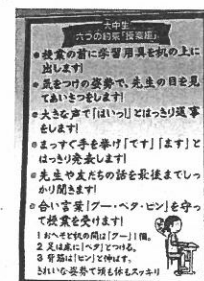 六中生
六つの約束「授業編」
●授業の前に学習用具を机の上に
出します!
●気をつけの姿勢で、先生の目を見
てあいさつをします!
●大きな声で「はいっ!」とはっきり返事
をします!
●まっすぐ手を挙げ「です」「ます」と
はっきり発表します!
●先生や友だちの話を最後までしっ
かり聞きます!
●合い言葉「グー・ペタ・ピン」を守っ
て授業を受けます!
1 おへそと机の間は「グー」1個。
2 足は床に「ペタ」とつける。
3 背筋は「ピン」と伸ばす。
きれいな姿勢で頭も体もスッキリ